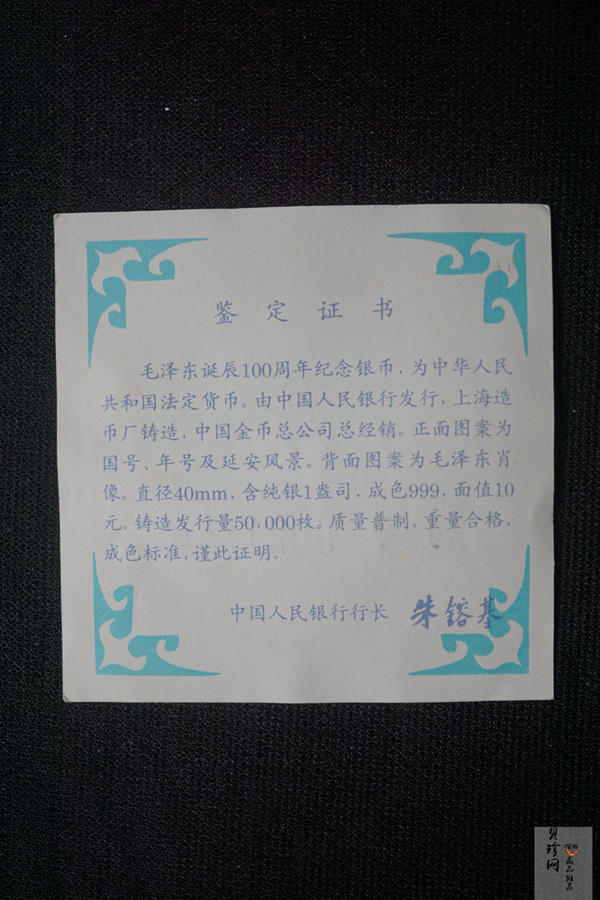 鉴定证书
毛泽东诞辰100周年纪念银币，为中华人民
共和国法定货币。由中国人民银行发行，上海造
币厂铸造，中国金币总公司总经销。正面图案为
国号、年号及延安风景。背面图案为毛泽东肖
像。直径40mm，含纯银1盎司，成色999，面值10
元。铸造发行量50,000枚。质量普制，重量合格，
成色标准，谨此证明。
中国人民银行行长 朱镕基
贝珍网
藏品推荐